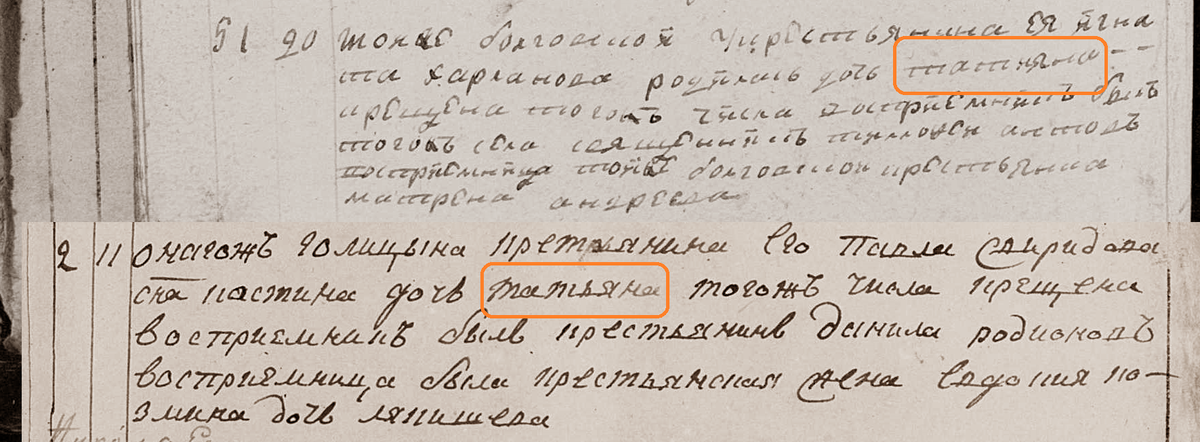 51 20 тояже болговской у крестьянина ея игна
та харланова родилась дочь татияна
крещена тогожъ числа восприемникъ былъ
тогожъ села священникъ тимофей антовъ
восприемница тояже болговской крестьянка
матрена андреева
2 11 онагожъ голицына крестьянина его павла свиридова
сна настина дочь татьяна тогожъ числа крещена
восприемникъ былъ крестьянинъ данила родионовъ
восприемница была крестьянская жена евдокия ко-
змина дочь ляпишева